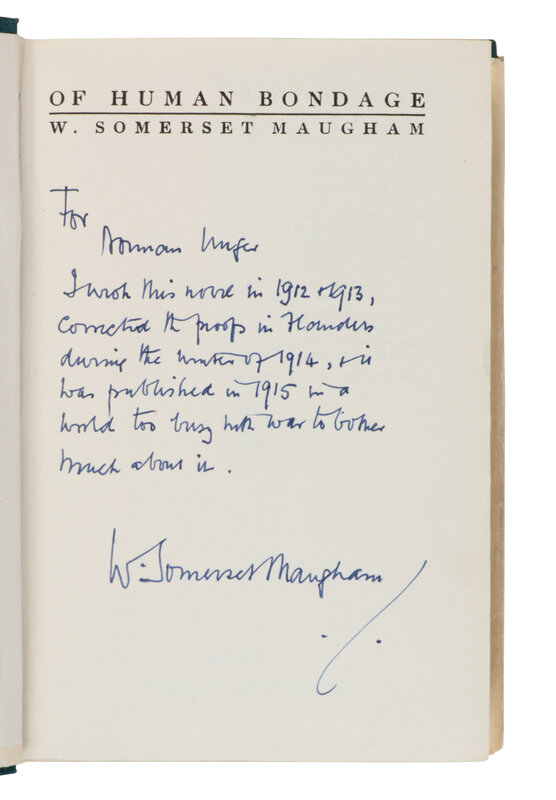 OF HUMAN BONDAGE
W. SOMERSET MAUGHAM
For
Norman Unger
I wrote this novel in 1912 & 1913,
corrected the proofs in Flanders
during the winter of 1914, & it
was published in 1915 in a
world too busy with war to bother
much about it.
W. Somerset Maugham